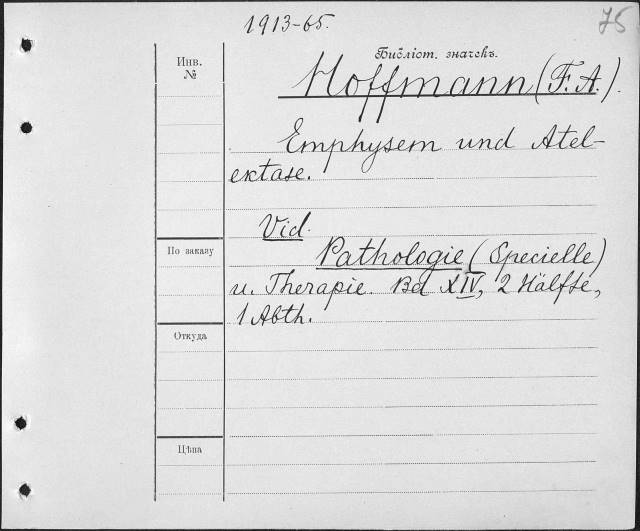 1913-65.
75
Библіот. значекъ.
Инв.
№
Hoffmann (F. A.).
Emphysem und Atel-
ektase.
Vid.
По заказу
Pathologie (Specielle)
u. Therapie. Bd XIV, 2 Hälfte,
1 Abth.
Откуда
Цѣна